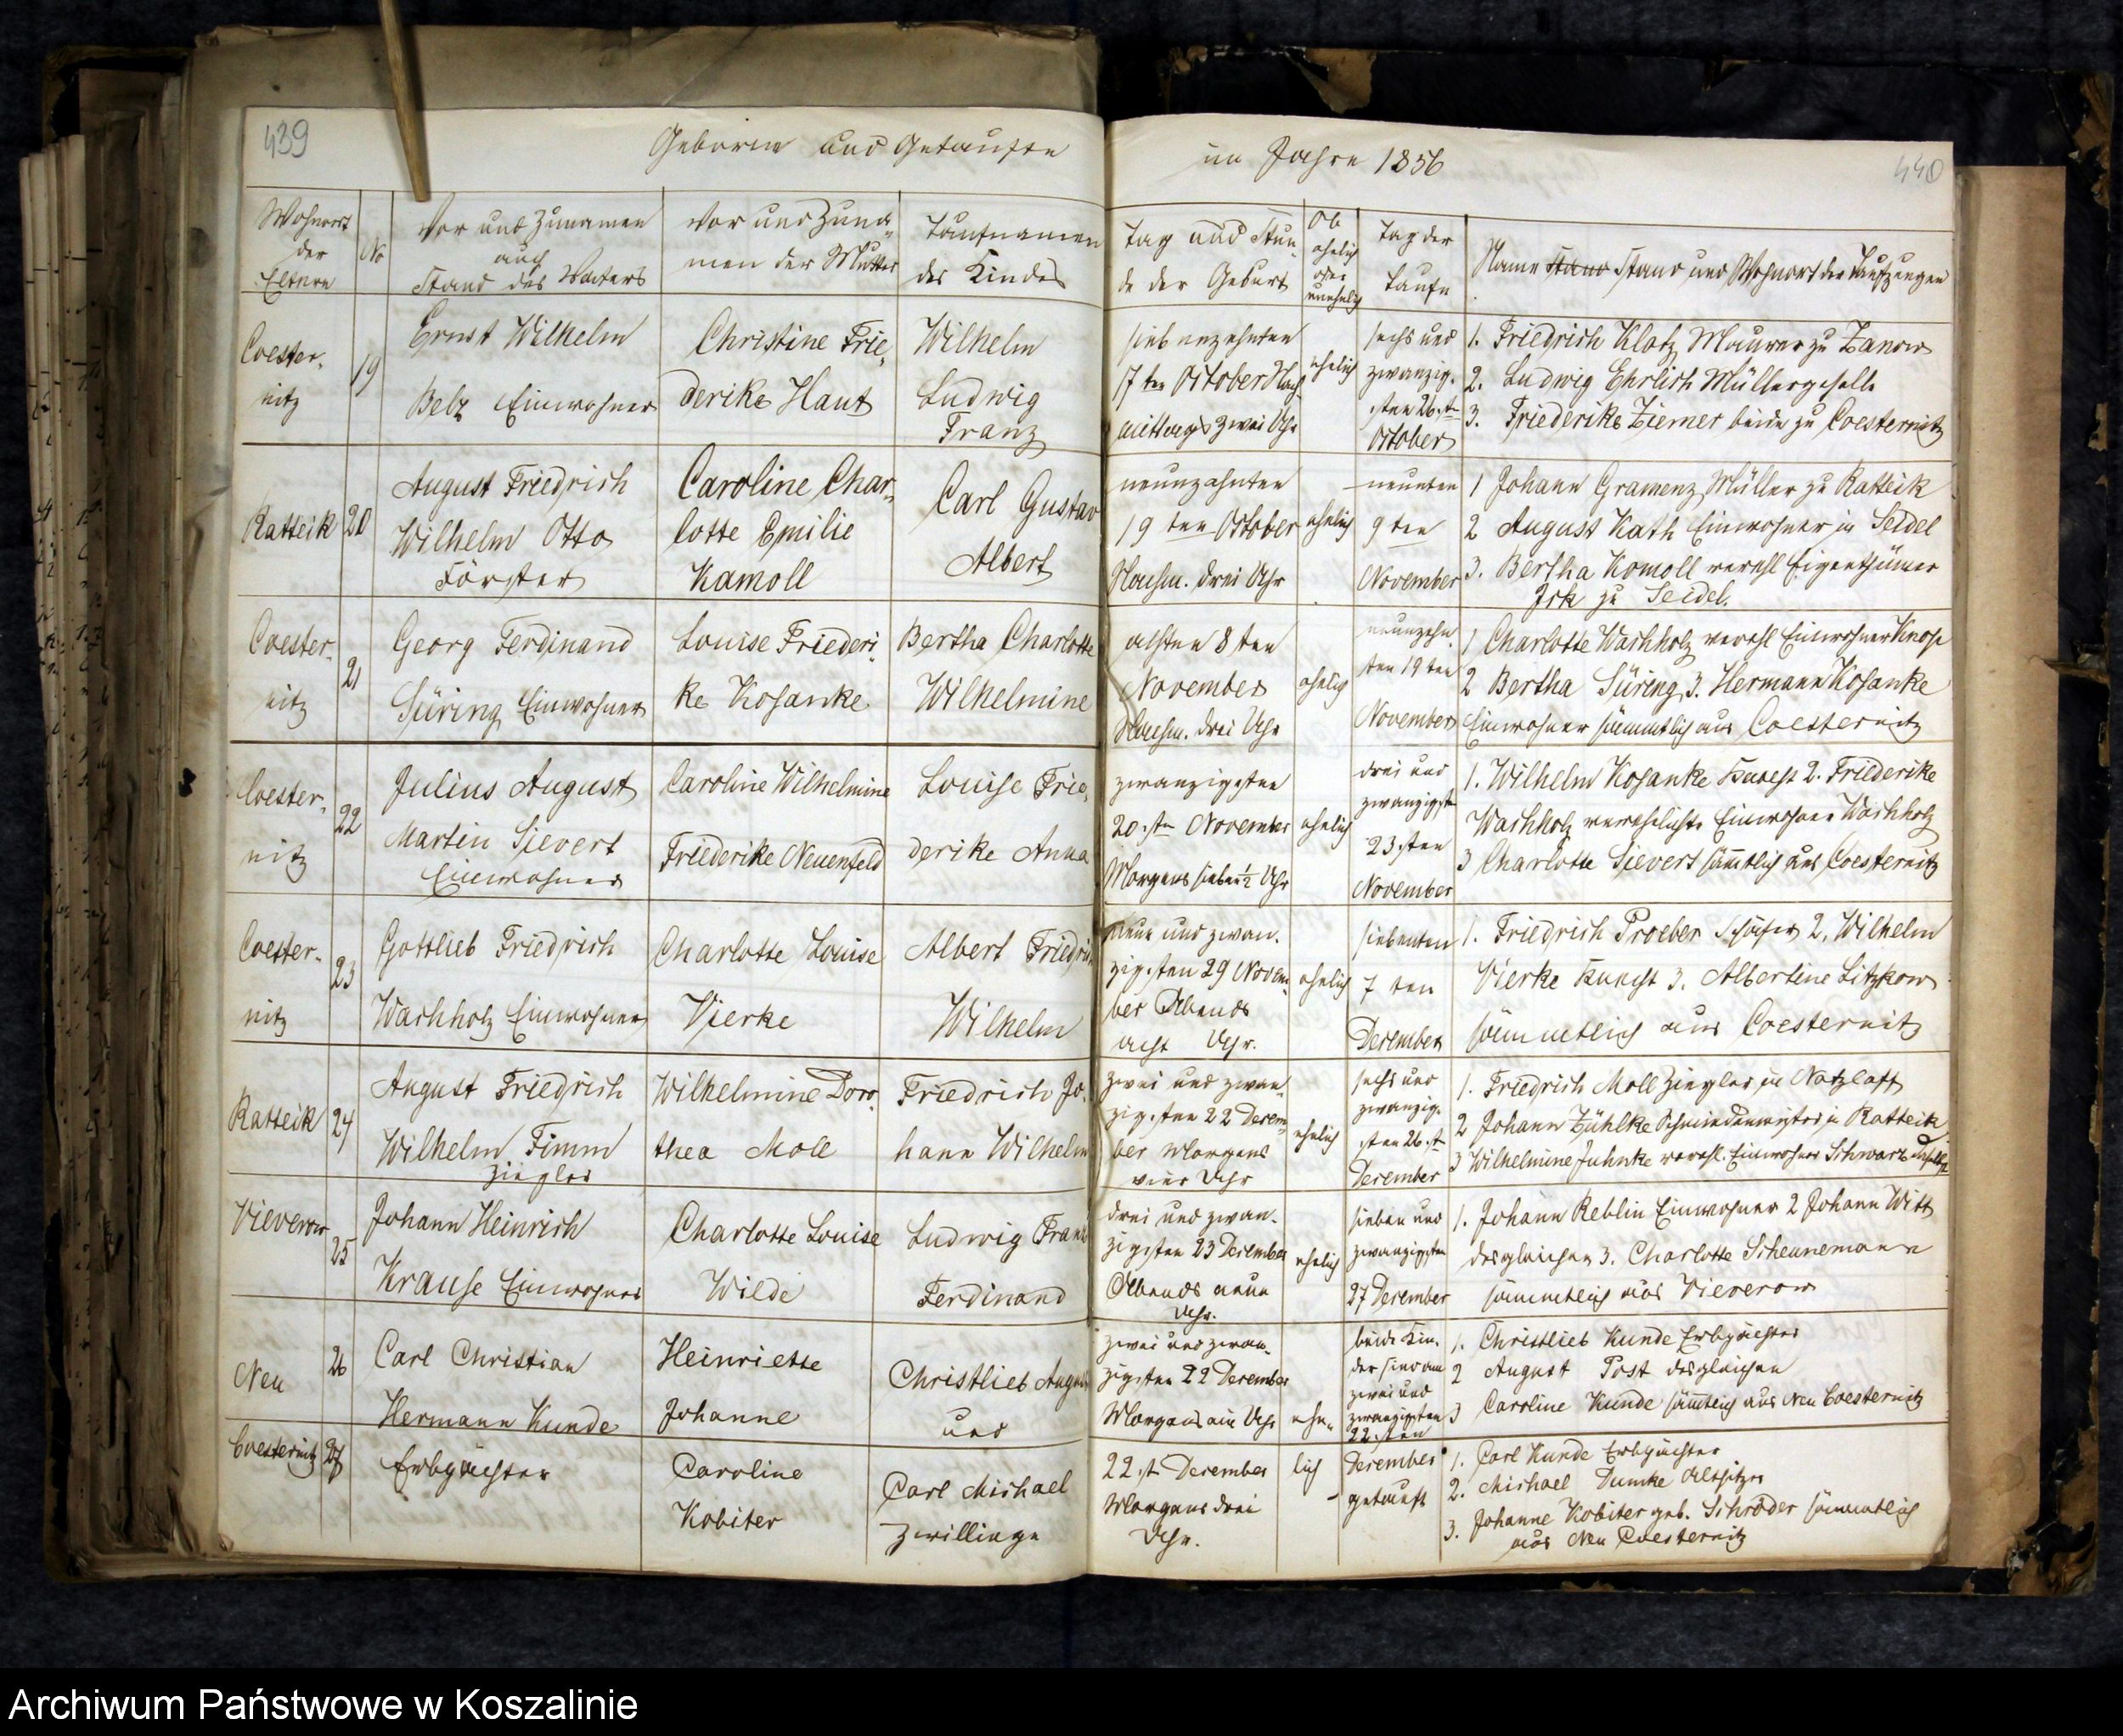 439
Geborne und Getaufte
im Jahre 1856
440
Wohnort
der
Eltern
No
Vor und Zunamen
auch
Stand des Vaters
Vor und Zuna-
men der Mutter
Taufnamen
des Kindes
Tag und Stun-
de der Geburt
Ob
ehelich
oder
unehelich
Tag der
Taufe
Name Stand Stand und Wohnort der Taufzeugen
Coester-
nitz
19
Ernst Wilhelm
Belz Einwohner
Christine Frie-
derike Haut
Wilhelm
Ludwig
Franz
siebenzehnten
17ten October Nach-
mittags zwei Uhr
ehelich
sechs und
zwanzig-
sten 26st
October
1. Friedrich Klotz Maurer zu Zanow
2. Ludwig Ehrlich Müllergeselle
3. Friederike Ziemer beide zu Coesternitz
Ratteik
20
August Friedrich
Wilhelm Otto
Förster
Caroline Char-
lotte Emilie
Kamoll
Carl Gustav
Albert
neunzehnten
19ten October
Nachm. drei Uhr
ehelich
neunten
9ten
November
1 Johann Gramenz Müller zu Ratteik
2 August Kath Einwohner in Seidel
3. Bertha Komoll verehl Eigenthümer
zu Seidel.
Coester-
nitz
21
Georg Ferdinand
Süring Einwohner
Louise Friederi-
ke Kosanke
Bertha Charlotte
Wilhelmine
achten 8ten
November
Nachm. drei Uhr
ehelich
neunzehn-
ten 19ten
November
1 Charlotte Wachholz verehl Einwohner Knop
2 Bertha Süring 3. Hermann Kosanke
Einwohner sämmtlich aus Coesternitz
Coester-
nitz
22
Julius August
Martin Sievert
Einwohner
Caroline Wilhelmine
Friederike Neuenfeld
Louise Frie-
derike Anna
zwanzigsten
20.ten November
Morgens sieben ½ Uhr
ehelich
drei und
zwanzigsten
23sten
November
1. Wilhelm Kosanke Knecht 2. Friederike
Wachholz verehelichte Einwohner Wachholz
3 Charlotte Sievert sämtlich aus Coesternitz
Coester-
nitz
23
Gottlieb Friedrich
Wachholz Einwohner
Charlotte Louise
Vierke
Albert Friedrich
Wilhelm
neun und zwan-
zigsten 29 Novem-
ber Abends
acht Uhr.
ehelich
siebenten
7ten
December
1. Friedrich Proeber Schäfer 2. Wilhelm
Vierke Knecht 3. Albertine Litzkow
sämmtlich aus Coesternitz
Ratteik
24
August Friedrich
Wilhelm Timm
Ziegler
Wilhelmine Doro-
thea Moll
Friedrich Jo-
hann Wilhelm
zwei und zwan-
zigsten 22 Decem-
ber Morgens
vier Uhr
ehelich
sechs und
zwanzig-
sten 26.st
December
1. Friedrich Moll Ziegler in Natzlaff
2 Johann Zühlke Schmiedemeister in Ratteik
3 Wilhelmine Juhnke verehl. Einwohner Schwarz daselbst
Vieverow
25
Johann Heinrich
Krause Einwohner
Charlotte Louise
Wilde
Ludwig Franz
Ferdinand
drei und zwan-
zigsten 23 December
Abends neun
Uhr.
ehelich
sieben und
zwanzigsten
27 December
1. Johann Reblin Einwohner 2 Johann Witt
desgleichen 3. Charlotte Scheunemann
sämmtlich aus Vieverow
Neu
26
Carl Christian
Hermann Kunde
Heinriette
Johanne
Christlieb August
und
zwei und zwan-
zigsten 22 December
Morgens ein Uhr
ehe-
beide Kin-
der sind am
zwei und
zwanzigsten
22.sten
1. Christlieb Kunde Erbpächter
2 August Post desgleichen
3 Caroline Kunde sämtlich aus Neu Coesternitz
Coesternitz
27
Erbpächter
Caroline
Kobiter
Carl Michael
Zwillinge
22.st December
Morgens drei
Uhr.
lich
December
getauft
1. Carl Kunde Erbpächter
2. Michael Dumke Altsitzer
3. Johanne Kobiter geb. Schröder sämmtlich
aus Neu Coesternitz
Archiwum Państwowe w Koszalinie